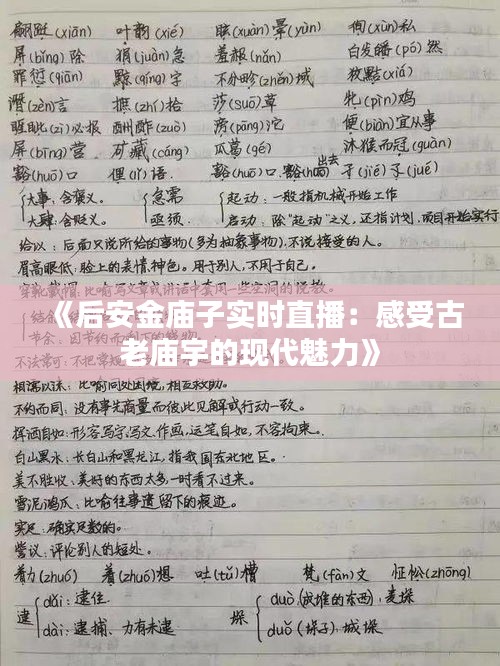 翩跹(xiān) 叶韵(xié) 眩(xuàn)晕(yùn) 徇(xùn)私
屏(bǐng)除 狷(juàn)急 羞赧(nǎn) 白发皤(pó)然
罪愆(qiān) 黥(qíng)字 不分畛(zhěn)域 狡黠(xiá)
谮(zèn)言 摭(zhí)拾 莎(suō)草 牝(pìn)鸡
睚眦(zì)必报 酬酢(zuò) 滂(pāng)沱 便(biàn)宜从事
屏(bīng)营 矿藏(cáng) 瓜葛(gé) 沐猴而冠(guàn)
豁(huō)口 俚(lǐ)语 豁(huō)口 豁(huō)出去 孑(jié)孓(jué)
大事:含褒义。 急需 起动:一般指机械开始工作
大肆:含贬义。 亟须 启动:除"起动"之义,还指计划、项目开始实行
给以:后面只说所给的事物(多为抽象事物),不说接受的人。
眉高眼低:脸上的表情,神色。用于别人,不用于自己。
《后安金庙子实时直播：感受古
老庙宇的现代魅力》
相濡以沫:比喻同处困境,相互救助。
不约而同:没有事先商量而彼此见解或行动一致。
挥洒自如:形容写字,写文,作画,运笔自如,不容拘束。
白山黑水:长白山和黑龙江,指我国东北地区。
美不胜收:美好的东西太多,一时看不过来。
雪泥鸿爪:比喻往事遗留下的痕迹。
实足:确实足数的。
訾议:评论别人的短处。
着力(zhuó) 着(zhuó)想 吐(tǔ)槽 梵(fàn)文 怔忪(zhōng)
逮 dǎi:逮住 垛 duò(成堆的东西):麦垛
dài:逮捕、力有未逮 duǒ(垛子):城垛